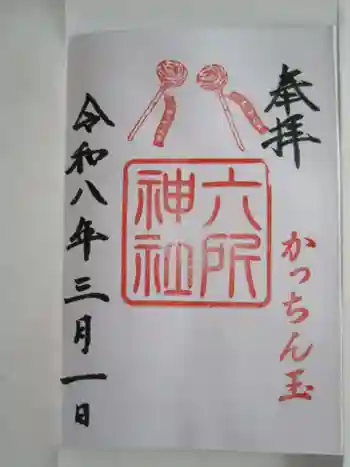 奉拝
かっちん玉
六所
神社
令和八年三月一日